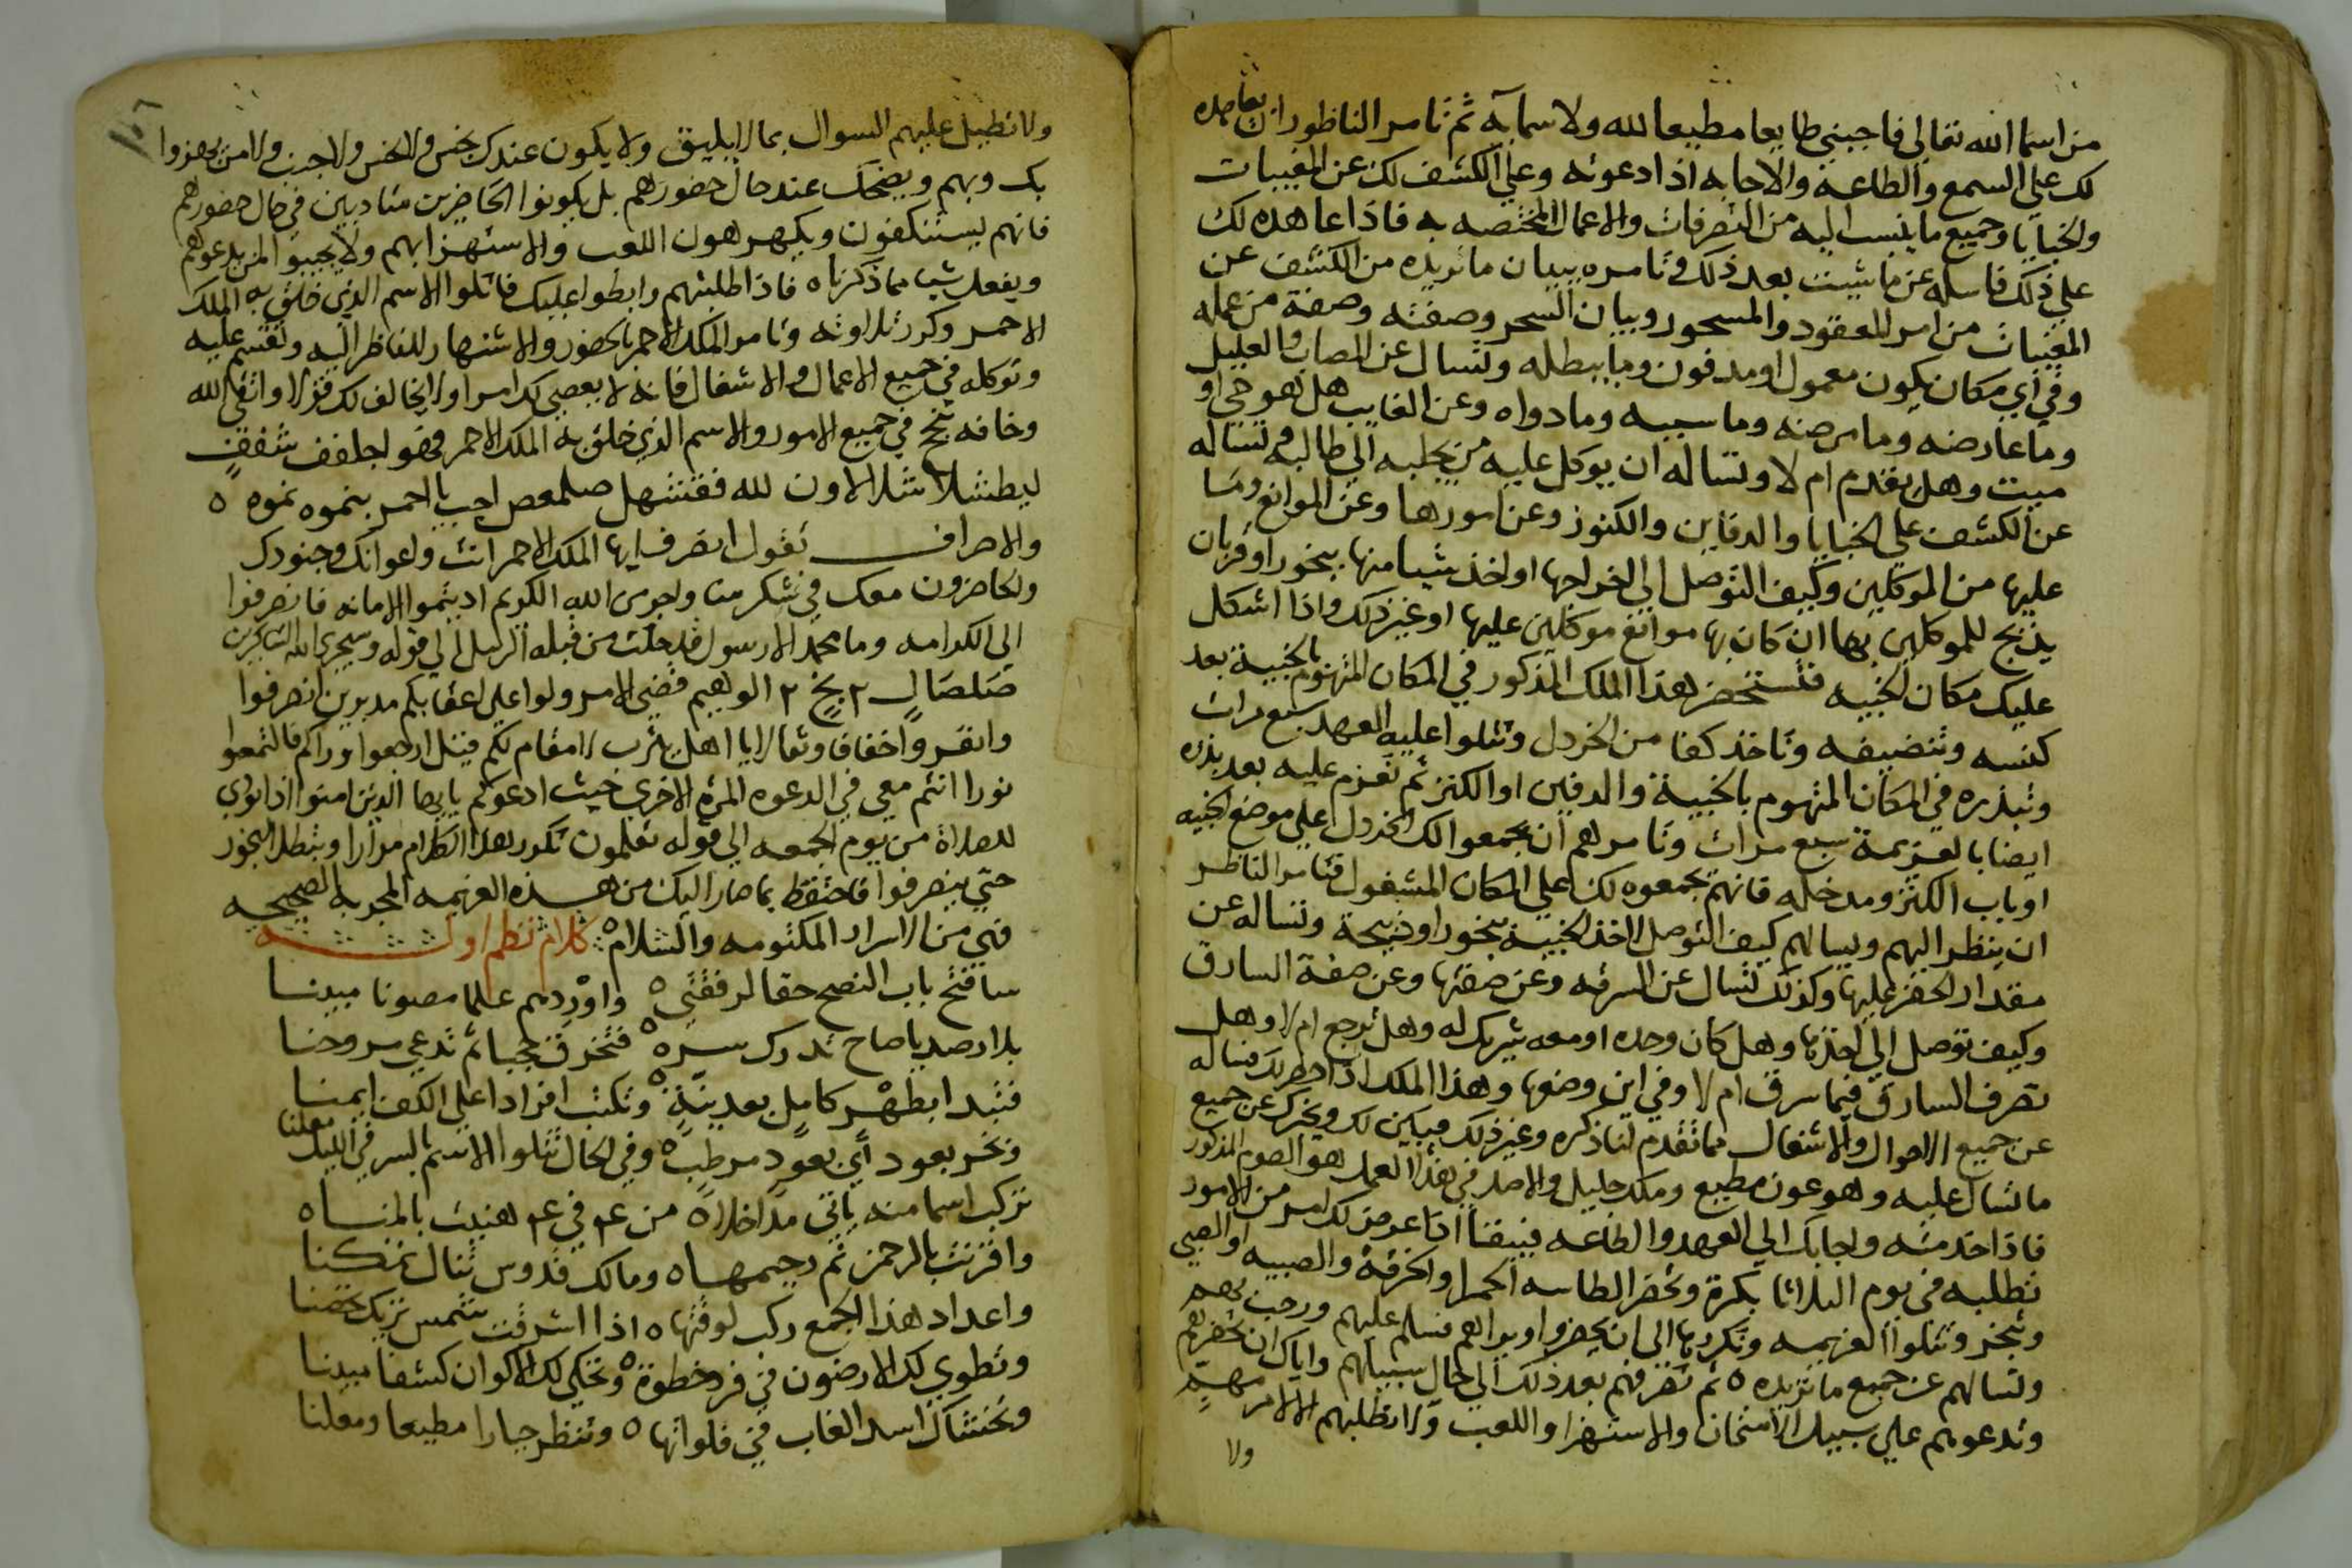 من اسما الله تعالي فاجبني طايعا مطيعا لله ولاسمايه ثم تامر الناظور ان يعاهده
لك علي السمع والطاعه والاجابه اذا دعوته وعلي الكشف لك عن المغيبات
والخبايا وجميع ما ينسب اليه من التصرفات والاعمال المختصه به فاذا عاهده لك
علي ذلك فاساله عن ما شيت بعد ذلك وتامره ببيان ما تريده من الكشف عن
المغيبات من امر المعقود والمسحور وبيان السحر وصفته وصفة من عمله
وفي اي مكان يكون معمول او مدفون وما يبطله وتسال عن المصاب والعليل
وما عارضه وما مرضه وما سببه وما دواه وعن الغايب هل هو حي او
ميت وهل يقدم ام لا وتساله ان يوكل عليه من يجلبه الي طالبه وتساله
عن الكشف علي الخبايا والدفاين والكنوز وعن امورها وعن الموانع وما
عليها من الموكلين وكيف التوصل الي اخراجها او اخذ شيا منها ببخور او قربان
يذبح للموكلين بها ان كان بها موانع موكلين عليها او غير ذلك واذا اشكل
عليك مكان الخبيه فتستحضر هذا الملك المذكور في المكان المتهوم بالخبية بعد
كنسه وتنضيفه وتاخذ كفا من الخردل وتتلوا عليه العهد سبع مرات
وتبذره في المكان المتهوم بالخبية والدفين او الكنز ثم تعزم عليه بعد بذره
ايضا بالعزيمة سبع مرات وتامرهم ان يجمعوا لك الخردل اعلي موضع الخبيه
او باب الكنز ومدخله فانهم يجمعوه لك علي المكان المشغول فتامر الناظر
ان ينظر اليهم ويسالهم كيف التوصل لاخذ الخبية ببخور او ذبيحة وتساله عن
مقدار الحفر عليها وكذلك تسال عن السرقه وعن صفتها وعن صفة السارق
وكيف توصل الي اخذها وهل كان وحده او معه شريك له وهل ترجع ام لا وهل
تصرف السارق فيما سرق ام لا وفي اين وضعها وهذا الملك اذا حضر لك فساله
عن جميع الاحوال والاشغال مما تقدم لنا ذكره وغير ذلك فيبين لك ويخبرك عن جميع
ما تسال عليه وهو عون مطيع وملك جليل والاصل في هذا العمل هو الصوم المذكور
فاذا خدمته واجابك الي العهد والطاعه فيبقا اذا عرض لك امر من الامور
تطلبه في يوم الثلاثا بكرة وتحضر الطاسه الحمرا والخرقة والصبيه او الصبي
وتبخر وتتلوا العزيمه وتكررها الي ان يحضروا ويراهم فسلم عليهم ورحب بهم
وتسالهم عن جميع ما تريده ه ثم تصرفهم بعد ذلك الي حال سبيلهم واياك ان تحضرهم
وتدعوهم علي سبيل الامتحان والاستهزا واللعب ولا تطلبهم الا لامر مهم
ولا
ولا تطيل عليهم السوال بما لا يليق ولا يكون عندك نجس ولا اجنب ولا من يهزوا
بك وبهم ويضحك عند حال حضورهم بل يكونوا الحاضرين متادبين في حال حضورهم
فانهم يستنكفون ويكرهون اللعب والاستهزا بهم ولا يجيبوا لمن يدعوهم
ويفعل شيا مما ذكرناه فاذا طلبتهم وابطوا عليك فاتلوا الاسم الذي خلق به الملك
الاحمر وكرر تلاوته وتامر الملك الاحمر بالحضور والاشتهار للناظر اليه وتقسم عليه
وتوكله في جميع الاعمال والاشغال فانه لا يعصي لك امرا ولا يخالف لك قولا واتقي الله
وخافه تنجح في جميع الامور والاسم الذي خلق به الملك الاحمر فهو اجلفف شفقف
ليطشلا شلالاون لله فقنشهل صلمعص اجب يا احمر بنموه نموه ه
والاصراف تقول انصرف ايها الملك الاحمر انت واعوانك وجنودك
والحاضرون معك في شكر منا واجر من الله الكريم اديتموا الامانه فانصرفوا
الي الكرامه وما محمد الا رسول قد خلت من قبله الرسل الي قوله وسيجزي الله الشاكرين
صلصال ٢ بخ ٢ الوهيم قضي الامر ولوا علي اعقابكم مدبرين انصرفوا
وانفروا خفافا وثقالا يا اهل يثرب لا مقام لكم قيل ارجعوا وراكم فالتمسوا
نورا انتم معي في الدعوه المرة الاخري حيث ادعوكم يا ايها الذين امنوا اذا نودي
للصلاة من يوم الجمعه الي قوله تعلمون تكرر هذا الكلام مرارا وتبطل البخور
حتي ينصرفوا فاحتفظ بما صار اليك من هذه العزيمه المجربه الصحيحه
فهي من الاسرار المكتومه والسلام ه كلام نظم اوله
سافتح باب النصح حقا لرفقتي ه واوردهم علما مصونا مبينا
بدا رصد يا صاح تدرك سره ه فتخرق حجبا ثم تدعي مروحنا
فتبدا بطهر كامل بعد نية ه وتكتب افرادا علي الكف ايمنا
وتخر بعود اي بعود مرطب ه وفي الحال تتلوا الاسم بالسر في الليل معلنا
تركب اسما منه ياتي مداخلا ه من عم في عم هنيت بالمنا ه
واقرنت بالرحمن ثم رحيمها ه ومالك قدوس تنال تمكنا
واعداد هذا الجمع ركب لوفقها ه اذا اشرقت شمس
وتطوي لك الارضون في فرد خطوة ه وتحكي لك الاكوان كشفا مبينا
وتخشاك اسد الغاب في فلواتها ه وتنظر جبارا مطيعا ومعلنا